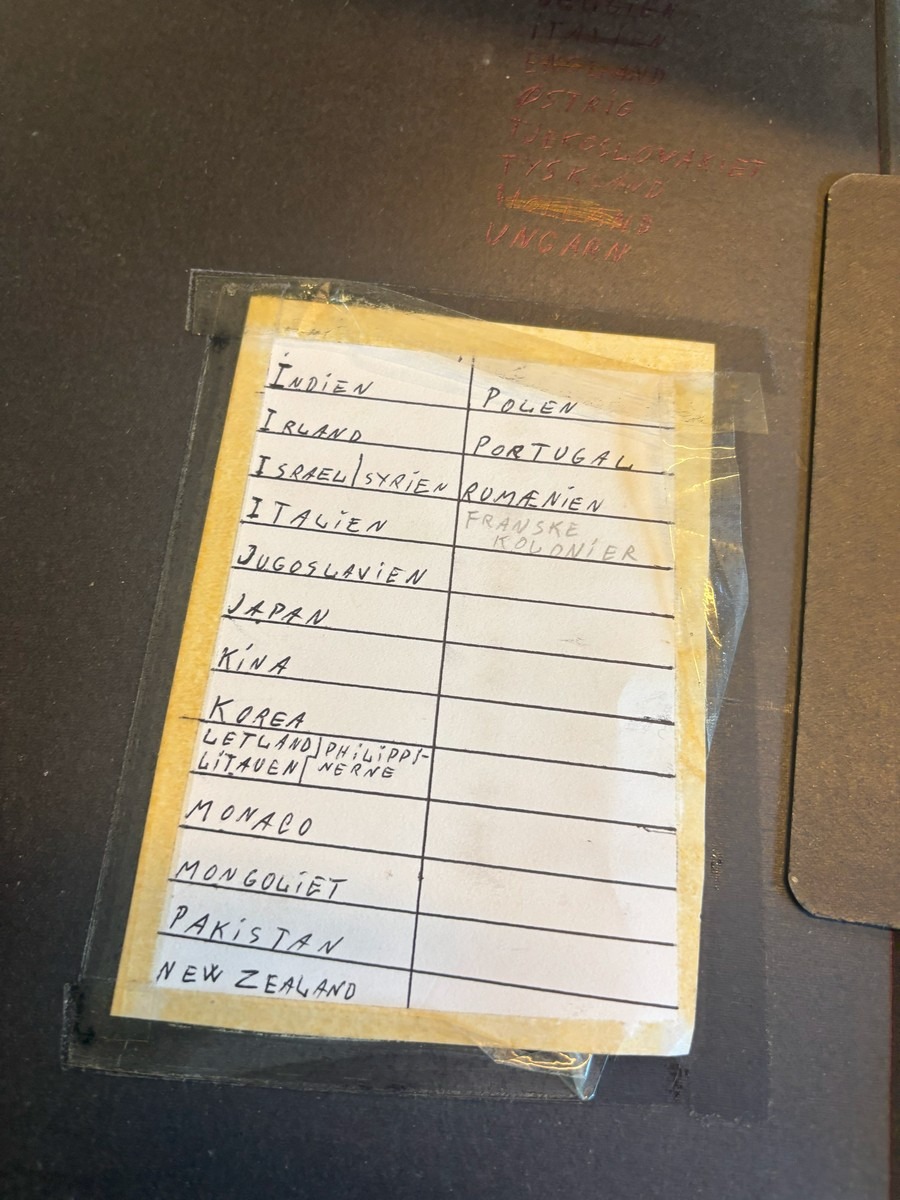 ITALIEN
ENGLAND
ØSTRIG
TJEKOSLOVAKIET
TYSKLAND
UNGARN
INDIEN
IRLAND
ISRAEL/SYRIEN
ITALIEN
JUGOSLAVIEN
JAPAN
KINA
KOREA
LETLAND PHILIPPI-
LITAUEN NERNE
MONACO
MONGOLIET
PAKISTAN
NEW ZEALAND
POLEN
PORTUGAL
RUMÆNIEN
FRANSKE
KOLONIER